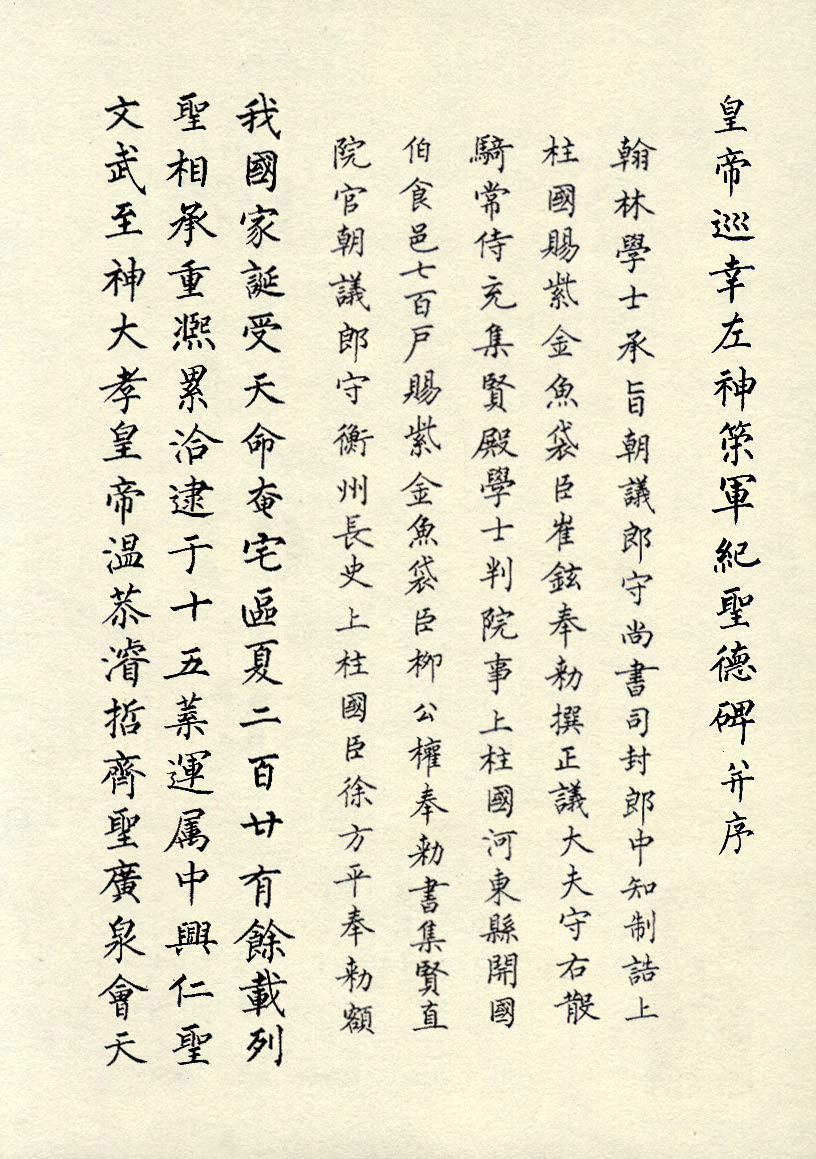 皇帝巡幸左神策軍紀聖德碑并序
翰林學士承旨朝議郎守尚書司封郎中知制誥上
柱國賜紫金魚袋臣崔鉉奉勅撰正議大夫守右散
騎常侍充集賢殿學士判院事上柱國河東縣開國
伯食邑七百戶賜紫金魚袋臣柳公權奉勅書集賢直
院官朝議郎守衡州長史上柱國臣徐方平奉勅額
我國家誕受天命奄宅區夏二百廿有餘載列
聖相承重熈累洽逮于十五葉運属中興仁聖
文武至神大孝皇帝温恭濬哲齊聖廣泉會天